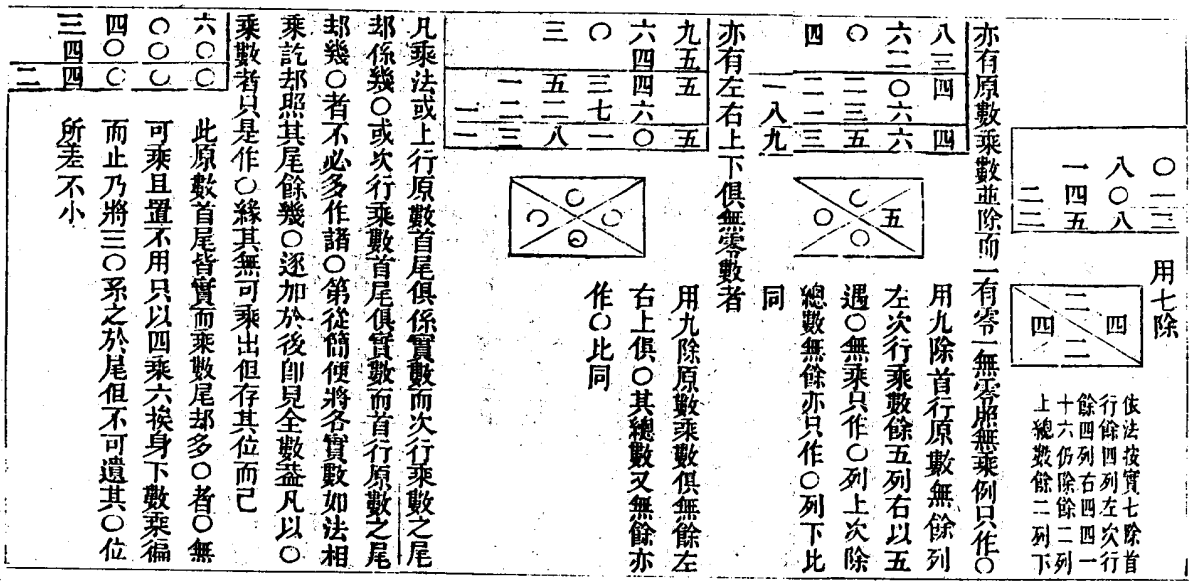 〇一三
八〇八
一四五
二二
用七除
二
四
四
二
依法按實七除首
行餘四列左次行
餘四列右四四一
十六仍除餘二列
上總數餘二列下
亦有原數乘數並除而一有零一無零照無乘例只作〇
八三四四
六二〇六六
〇二三五
四二一三
一八九
〇
五
〇
〇
用九除首行原數無餘列
左次行乘數餘五列右以五
遇〇無乘只作〇列上次除
總數無餘亦只作〇列下比
同
亦有左右上下俱無零數者
九五五五
六四四六〇
〇三七一
三五二八
一二三
二一
〇
〇
〇
〇
用九除原數乘數俱無餘左
右上俱〇其總數又無餘亦
作〇比同
凡乘法或上行原數首尾俱係實數而次行乘數之尾
却係幾〇或次行乘數首尾俱實數而首行原數之尾
却幾〇者不必多作諸〇第從簡便將各實數如法相
乘訖却照其尾餘幾〇逐加於後卽見全數葢凡以〇
乘數者只是作〇緣其無可乘出但存其位而已
六〇〇
〇〇〇
四〇〇
三四四
二
此原數首尾皆實而乘數尾却多〇者〇無
可乘且置不用只以四乘六挨身下數乘徧
而止乃將三〇系之於尾但不可遺其〇位
所差不小